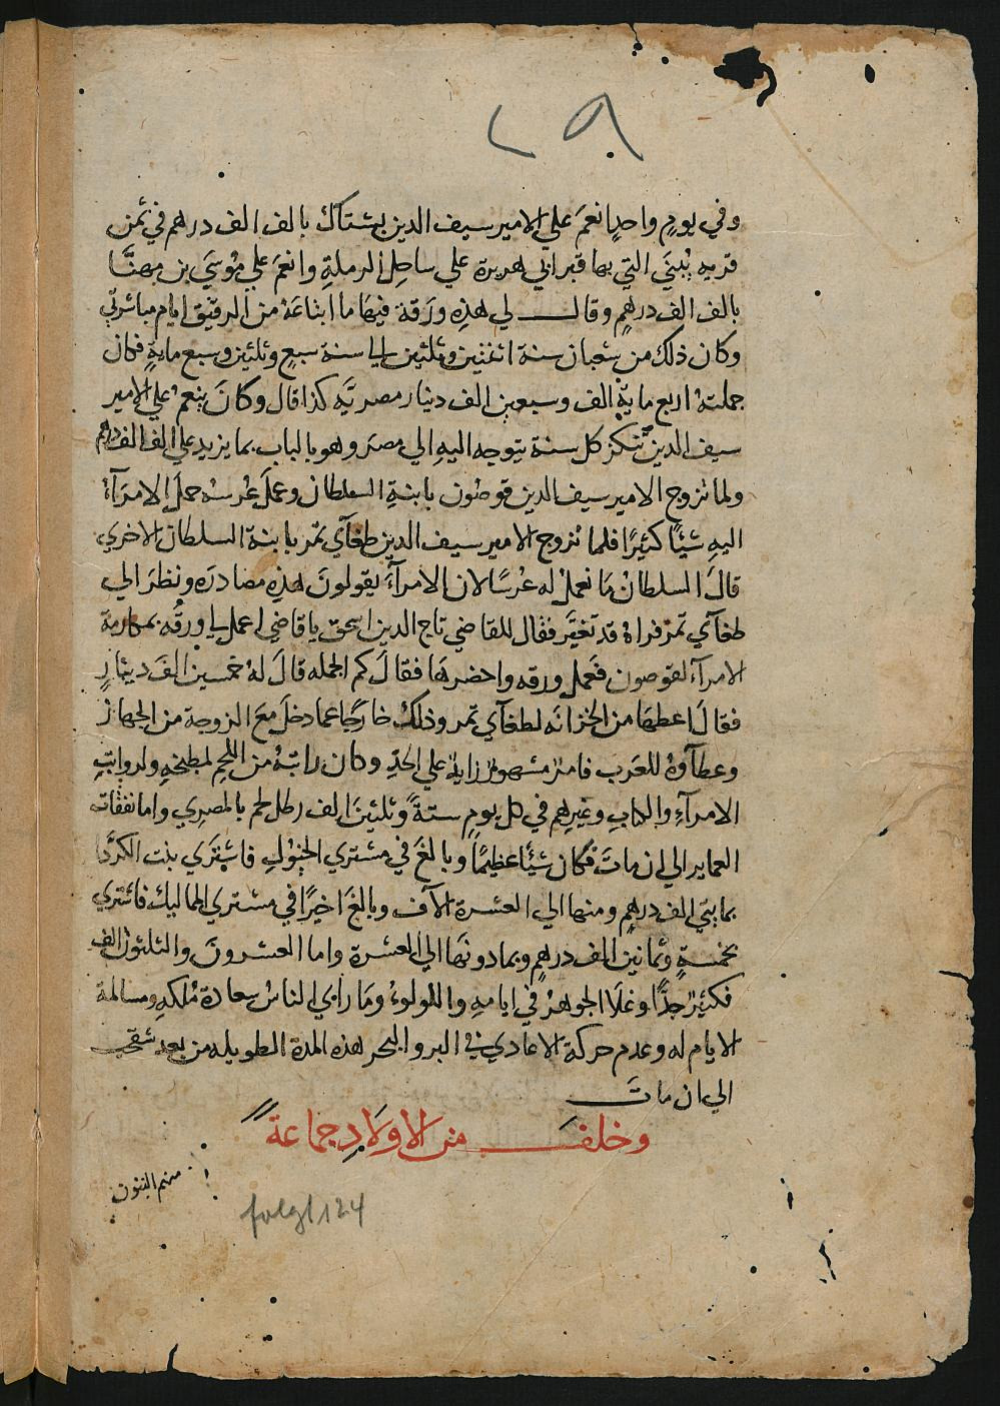 وفي يومٍ واحدٍ انعمَ علي الامير سيف الدين بشتاك بالف الف درهم في ثمن
قريه يُبْنَي التي بها قبر ابي هريرة علي ساحِل الرملةِ وانعَمَ علي مُوْسَي بن مهنَّا
بالف الف درهمٍ وقال لي هذِه ورَقة فيهَا ما ابتاعَهُ من الرقيق ايام مباشرتي
وكان ذلك من شعبان سنة اثنتين وثلثين الي سنة سبعٍ وثلثين وسبع مايةٍ فكان
جملته اربع مايةِ الف وسبعين الف دينار مصريَّه كذا قال وكانَ ينعم علي الامير
سيف الدين تنكز كل سنة يتوجه اليهِ الي مصرَ وهو بالباب بما يزيد علي الف الف درهم
ولما تزوج الامير سيف الدين قوصُون بابنةِ السلطان وعمل عُرسه حملَ الامرَآءُ
اليهِ شيئًا كثيرًا فلما تزوج الامير سيف الدين طغآي تمر بابنة السلطان الاخري
قالَ السلطانُ مَا نعملُ له عُرسًا لان الامرآءَ يقولونَ هذِه مصادرَه ونظرَ الي
طغآي تمر فراهُ قد تغيَّر فقال للقاضي تاج الدين اسحق يا قاضي اعمل لي ورقه بمكارمة
الامرآء لقوصون فعمل ورقه واحضرهَا فقالَ كم الجمله قالَ لهُ خمسين الفَ دينارٍ
فقالَ اعطهَا من الخزانَه لطغآي تمر وذلكَ خارجًا عما دخلَ معَ الزوجة من الجهاز
وعطآوهُ للعَرب فامرٌ مشهورٌ زايدٌ علي الحدِّ وكان راتبُهُ من اللحمِ لمطبخهِ ولرواتبِ
الامرآءِ والكتابِ وغيرهم في كل يومٍ ستةً وثلثينَ الف رطل لحم بالمصري واما نفقاته
العماير الي ان ماتَ فكان شيئًا عظيمًا وبالغَ في مشتري الخيُوْلِ فاشترَي بنت الكردا
بمايتي الف درهمٍ ومنها الي العشرة الآف وبالغَ اخيرًا في مشتري المماليك فاشتري
بخمسةٍ وثمانين الف درهمٍ وبما دونهَا الي العشرة واما العشرونَ والثلثون الف
فكثيرٌ جدًّا وغلَا الجوهَرُ في ايامهِ واللولوءُ ومَا راي الناسُ سعادةَ مُلكهِ ومسالمة
الايام له وعدم حركة الاعادي في البر والبحر هذه المدة الطويله من بعد شقحب
الي ان ماتَ
وخلفَ من الاولَادِ جماعةً
منهم البنون
folgt 124